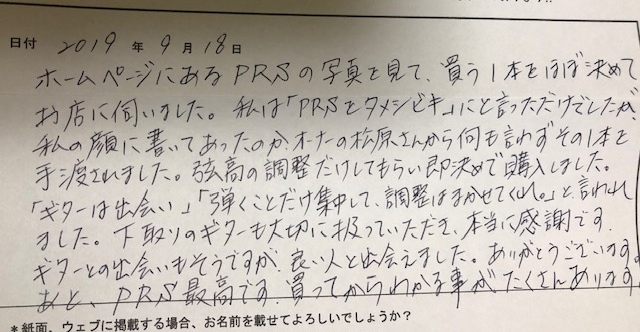 日付 2019 年 9 月 18 日
ホームページにあるPRSの写真を見て、買う1本をほぼ決めて
お店に伺いました。私は「PRSをタメシビキ」にと言っただけでしたが
私の顔に書いてあったのか、オーナーの松原さんから何も言わずその1本を
手渡されました。弦高の調整だけしてもらい即決めで購入しました。
「ギターは出会い」「弾くことだけ集中して、調整はまかせてくれ。」と言われ
ました。下取りのギターも大切に扱っていただき、本当に感謝です。
ギターとの出会いもそうですが、良い人と出会えました。ありがとうございます。
あと、PRS最高です。買ってからわかる事がたくさんあります
*紙面、ウェブに掲載する場合、お名前を載せてよろしいでしょうか?